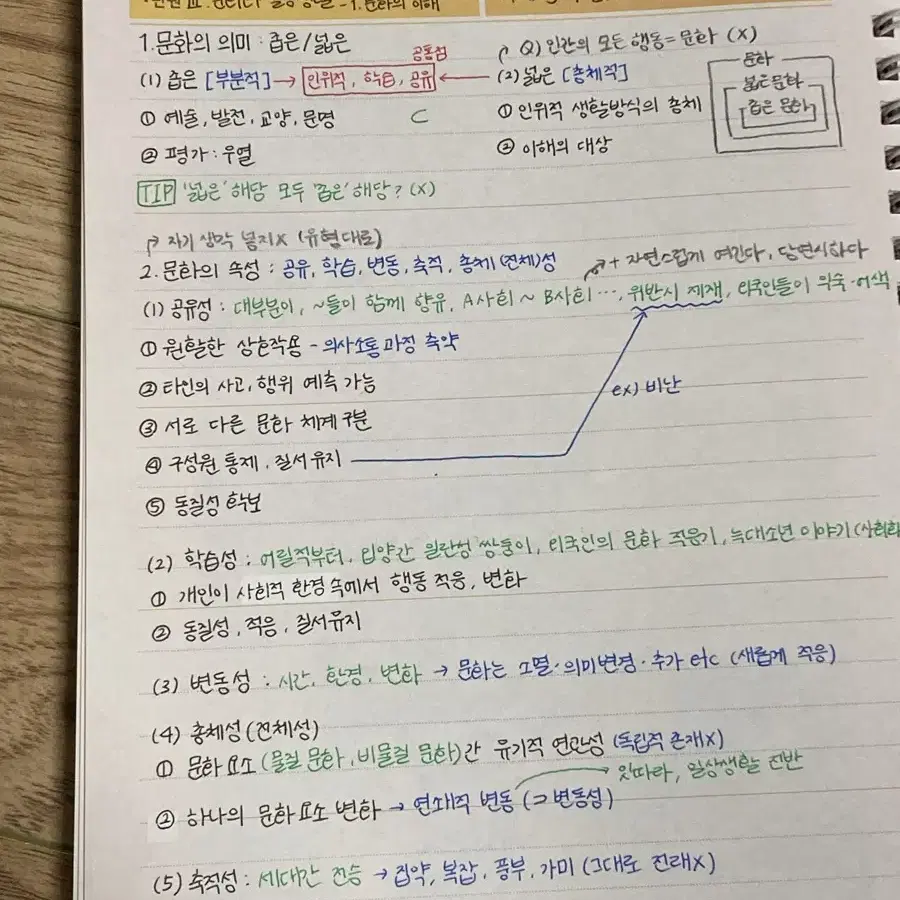 1. 문화의 이해
1. 문화의 의미 : 좁은/넓은
공통점
Q) 인간의 모든 행동 = 문화 (X)
(1) 좁은 [부분적] → 인위적, 학습, 공유 ← (2) 넓은 [총체적]
① 예술, 발전, 교양, 문명 ⊂ ① 인위적 생활방식의 총체
② 평가 : 우열 ② 이해의 대상
문화
넓은 문화
좁은 문화
TIP '넓은' 해당 모두 '좁은' 해당? (X)
자기 생각 넣지X (유형대로)
2. 문화의 속성 : 공유, 학습, 변동, 축적, 총체(전체)성
+ 자연스럽게 여긴다, 당연시하다
(1) 공유성 : 대부분이, ~들이 함께 향유, A사회 ~ B사회 …, 위반시 제재, 외국인들이 미숙·어색
① 원활한 상호작용 - 의사소통 과정 축약
② 타인의 사고, 행위 예측 가능
ex) 비난
③ 서로 다른 문화 체계 구분
④ 구성원 통제, 질서 유지
⑤ 동질성 확보
(2) 학습성 : 어릴적부터, 입양간 일란성 쌍둥이, 외국인의 문화 적응기, 늑대소년 이야기 (사회화
① 개인이 사회적 환경 속에서 행동 적응, 변화
② 동질성, 적응, 질서유지
(3) 변동성 : 시간, 환경, 변화 → 문화는 소멸·의미변경·추가 etc (새롭게 적응)
(4) 총체성 (전체성)
① 문화 요소 (물질 문화, 비물질 문화)간 유기적 연관성 (독립적 존재X)
잇따라, 일상생활 전반
② 하나의 문화 요소 변화 → 연쇄적 변동 (⊃ 변동성)
(5) 축적성 : 세대간 전승 → 집약, 복잡, 풍부, 가미 (그대로 전래X)